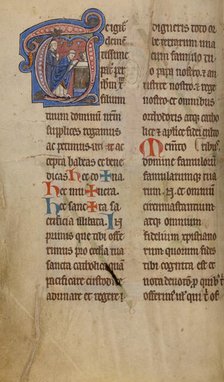 T eigit
clemē
tissime
pat̄ per
ihm̄
xpm̄ fi
lium tuum dominum nrm̄
supplices rogamus
ac petimus uti ac
cepta habeas et bene
dicas hec ✠ do ✠ na
hec mu ✠ nera
hec sanc ✠ ta sa
crificia illibata. In
primis que tibi offe
rimus pro eccl̄ia tua
sancta catholica quā
pacificare custodire
adunare et regere
digneris toto or
be terrarum una
cum famulo tuo
papa nostro
et rege
nostro et omnibus
orthodoxis atqꝫ catho
lice et aplice fidei cultoribꝫ
Memento
domine famulorum
famularumqꝫ tua
rum N. et omnium
circumastantium
atqꝫ omnium
fidelium xp̄istiano
rum quorum tibi
fides cognita est et
nota deuotio p̄ quibꝫ tibi
offerimus uel qui t̄ of